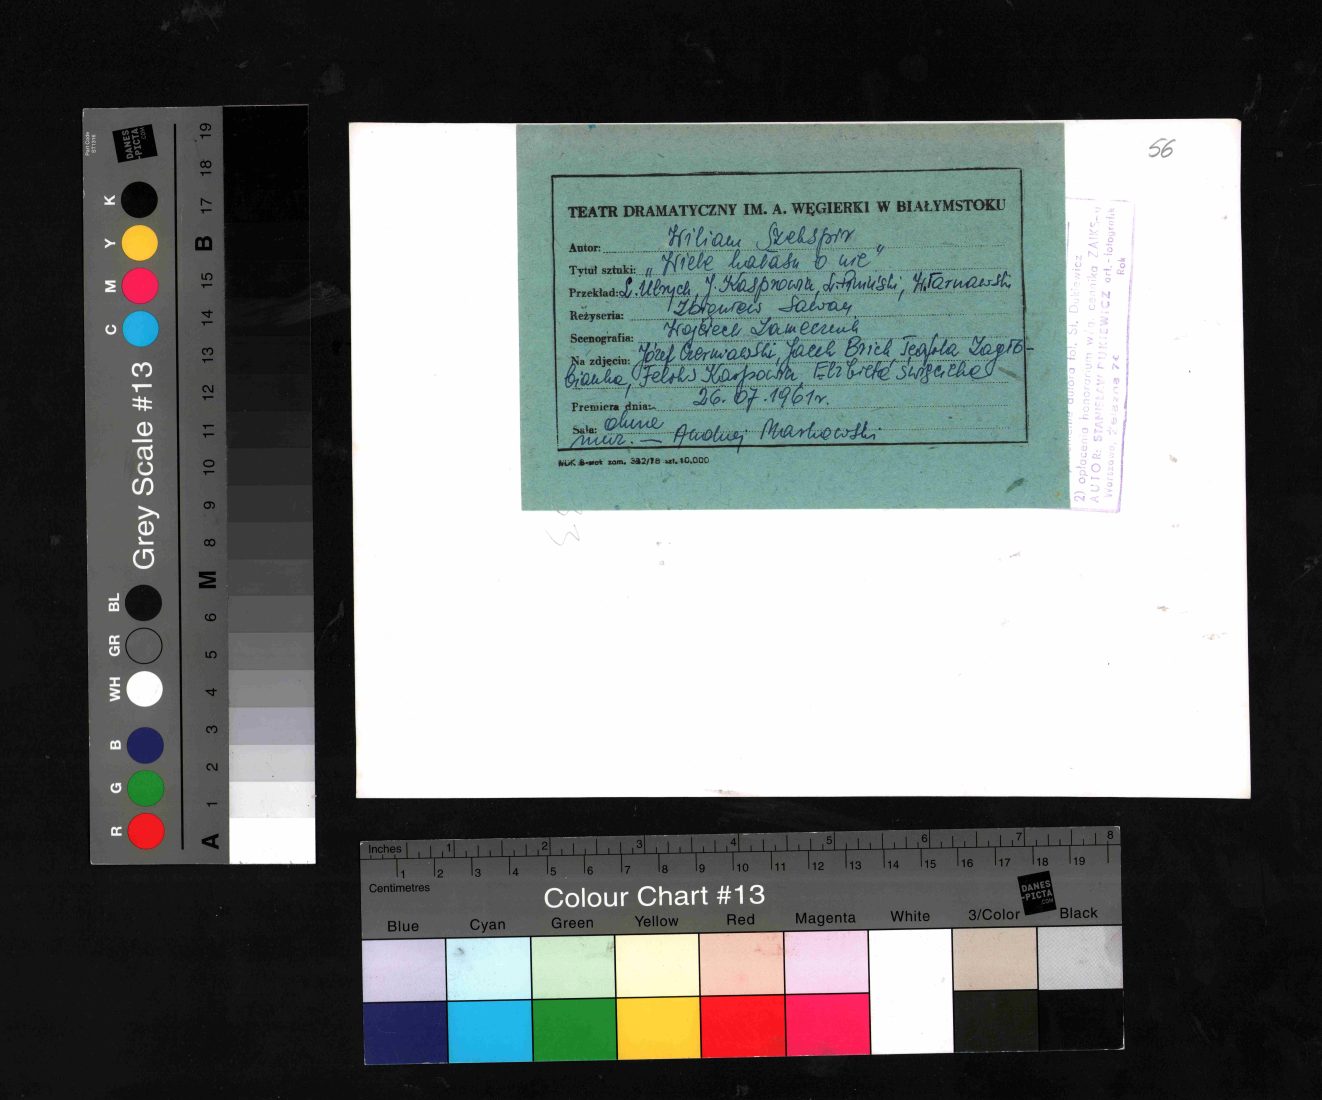 56
TEATR DRAMATYCZNY IM. A. WĘGIERKI W BIAŁYMSTOKU
Autor: Wiliam Szekspir
Tytuł sztuki: „Wiele hałasu o nic"
Przekład: L. Ulrych, J. Kasprowicz, W. Tarnawski
Reżyseria: Zbigniew Sawan
Scenografia: Wojciech Zamecznik
Na zdjęciu: Józef Czerniawski, Jacek Brick, Teofila Zagło-
bianka, Feliks Karpowicz, Elżbieta Święcicka
Premiera dnia: 26.07.1961r.
Sala:
muz. — Andrzej Markowski
zam. 392/78 szt. 10.000
autora fot. St. Dukiewicz
2) opłacenia honorarium w/g. cennika ZAIKS-u
AUTOR: STANISŁAW DUKIEWICZ art.-fotografik
Warszawa, Żelazna
Rok
Part Code
ST1316
DANES
-PICTA
.COM
Grey Scale #13
K Y M C
BL GR WH
B G R
A 1 2 3 4 5 6 M 8 9 10 11 12 13 14 15 B 17 18 19
Inches 1 2 3 4 5 6 7 8
Centimetres 1 2 3 4 5 6 7 8 9 10 11 12 13 14 15 16 17 18 19
Colour Chart #13
DANES
-PICTA
.COM
Blue Cyan Green Yellow Red Magenta White 3/Color Black